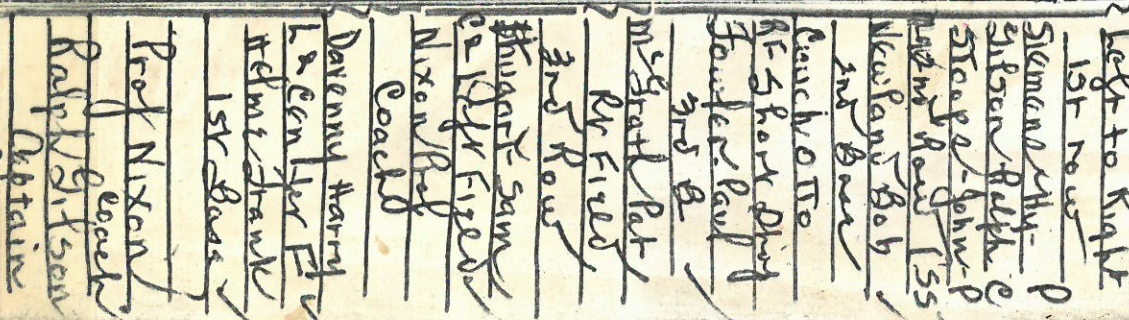 Left to Right
1st row
Siemans Hy - P
Gibson Ralph C
Stoops - John - P
Row SS
Newland Bob
2nd Base
Couch Otto
RF - Short
Fowler Paul
3rd B
McGrath Pat
Rt Field
3rd Row
Stuart Sam
C & Left Field
Nixon Prof
Coach
Davenny Harry
L & Center F
Helms Frank
1st Base
Prof Nixon
Coach
Ralph Gibson
Captain